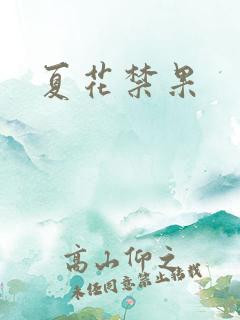 夏花禁果
高山仰之
未经同意禁止转载